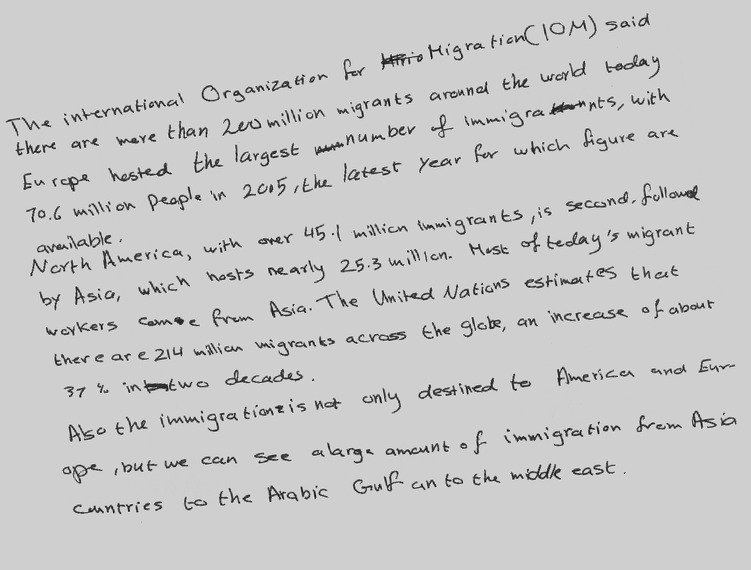 The international Organization for Migration (IOM) said
there are more than 200 million migrants around the world today
Europe hosted the largest number of immigrants, with
70.6 million people in 2005, the latest year for which figure are
available.
North America, with over 45.1 million immigrants, is second, followed
by Asia, which hosts nearly 25.3 million. Most of today's migrant
workers come from Asia. The United Nations estimates that
there are 214 million migrants across the globe, an increase of about
37 % in two decades.
Also the immigration is not only destined to America and Eur-
ope, but we can see a large amount of immigration from Asia
countries to the Arabic Gulf an to the middle east.